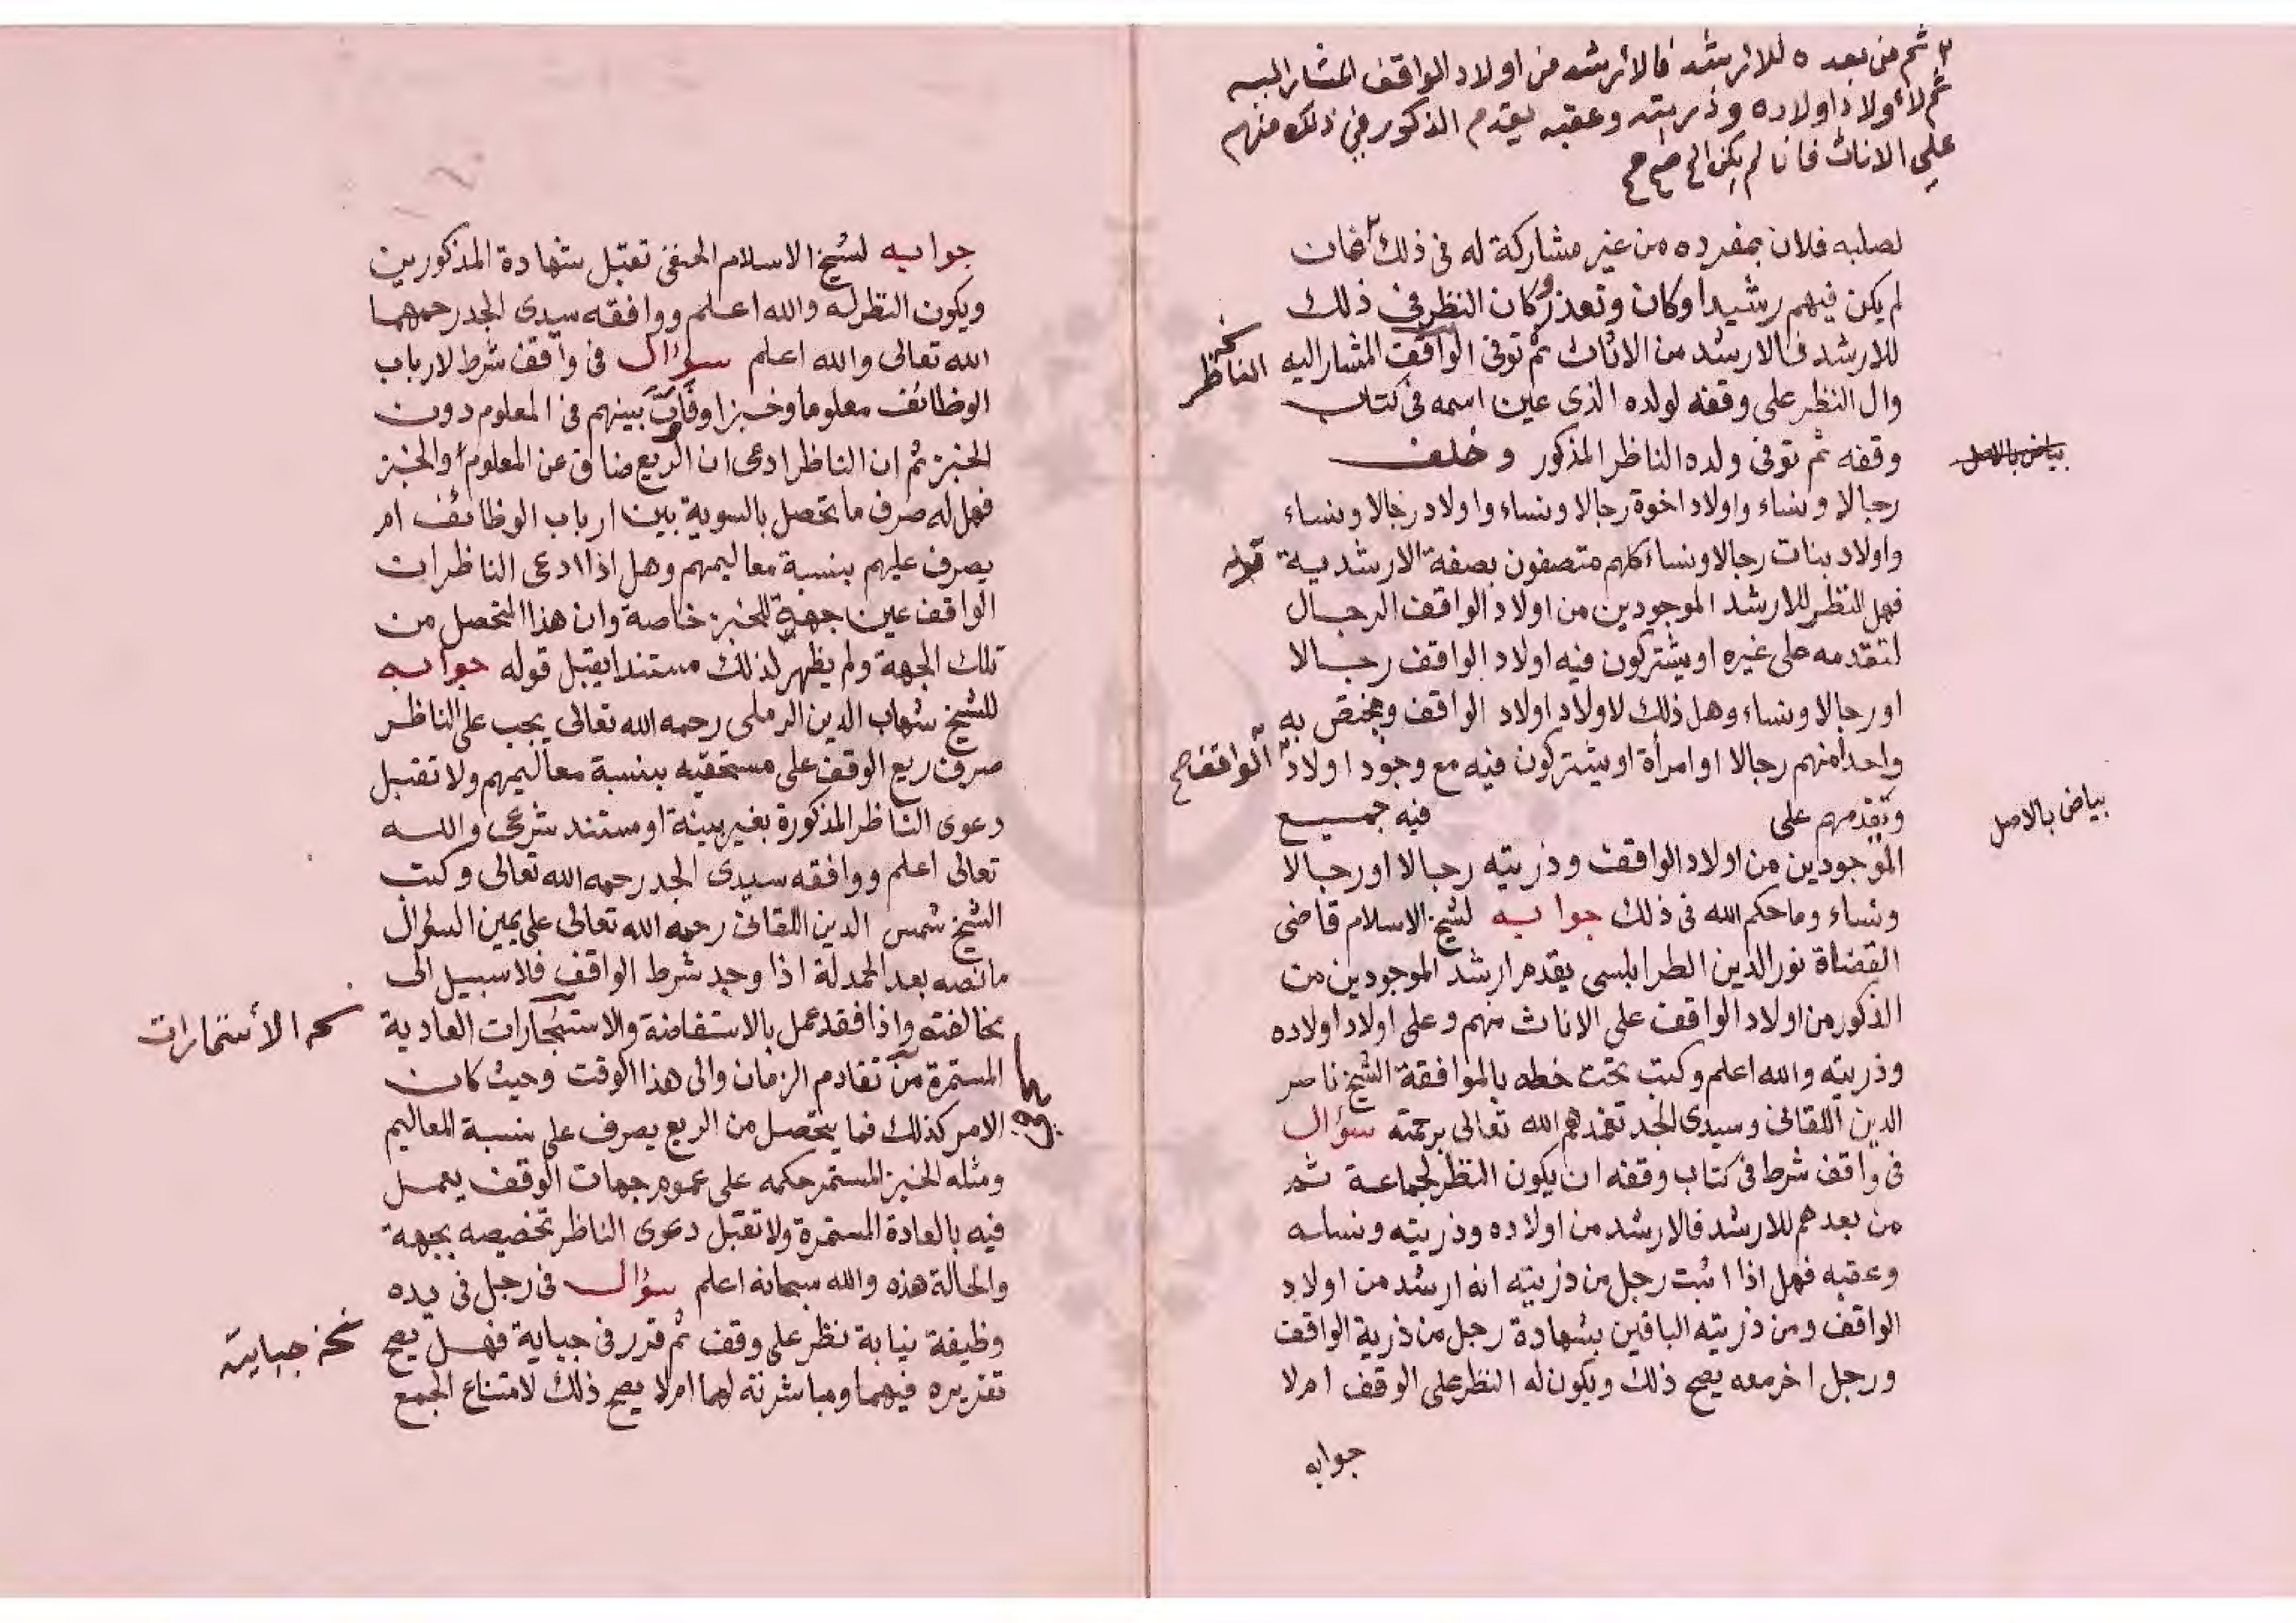 ٢ ثم من بعده للارشد فالارشد من اولاد الواقف المشار اليه
ثم لأولاد اولاده وذريته وعقبه يقدم الذكور في ذلك منهم
على الاناث فان لم يكن الخ صح صح
لصلبه فلان بمفرده من غير مشاركة له فى ذلك ٢ فان
لم يكن فيهم رشيدا وكان وتعذر وكان النظر فى ذلك
للارشد فالارشد من الاناث ثم توفى الواقف المشار اليه
نخ الناظر
وال النظر على وقفه لولده الذى عين اسمه فى كتاب
وقفه ثم توفى ولده الناظر المذكور وخلف
بياض بالاصل
رجالا ونساء واولاد اخوة رجالا ونساء واولاد رجالا ونساء
واولاد بنات رجالا ونساء كلهم متصفون بصفة الارشدية
فهل النظر للارشد الموجودين من اولاد الواقف الرجال
لتقدمه على غيره او يشتركون فيه اولاد الواقف رجالا
او رجالا ونساء وهل ذلك لاولاد اولاد الواقف ويختص به
واحدا منهم رجالا او امرأة او يشتركون فيه مع وجود اولاد الواقف صح
وتقدمهم على فيه جميع
بياض بالاصل
الموجودين من اولاد الواقف وذريته رجالا او رجالا
ونساء وما حكم الله فى ذلك جوابه لشيخ الاسلام قاضى
القضاة نور الدين الطرابلسى يقدم ارشد الموجودين من
الذكور من اولاد الواقف على الاناث منهم وعلى اولاد اولاده
وذريته والله اعلم وكتب تحت خطه بالموافقة الشيخ ناصر
الدين اللقانى وسيدى الجد تغمدهم الله تعالى برحمته سؤال
فى واقف شرط فى كتاب وقفه ان يكون النظر لجماعة ثم
من بعدهم للارشد فالارشد من اولاده وذريته ونسله
وعقبه فهل اذا اثبت رجل من ذريته انه ارشد من اولاد
الواقف ومن ذريته الباقين بشهادة رجل من ذرية الواقف
ورجل اخر معه يصح ذلك ويكون له النظر على الوقف ام لا
جوابه
جوابه لشيخ الاسلام الحنفى تقبل شهادة المذكورين
ويكون النظر له والله اعلم ووافقه سيدى الجد رحمهما
الله تعالى والله اعلم سؤال فى واقف شرط لارباب
الوظائف معلوما وخبزا وفاوت بينهم فى المعلوم دون
الخبز ثم ان الناظر ادعى ان الريع ضاق عن المعلوم والخبز
فهل له صرف ما تحصل بالسوية بين ارباب الوظائف ام
يصرف عليهم بنسبة معاليمهم وهل اذا ادعى الناظر ان
الواقف عين جهة للخبز خاصة وان هذا المتحصل من
تلك الجهة ولم يظهر لذلك مستندا يقبل قوله جوابه
للشيخ شهاب الدين الرملى رحمه الله تعالى يجب على الناظر
صرف ريع الوقف على مستحقيه بنسبة معاليمهم ولا تقبل
دعوى الناظر المذكورة بغير بينة او مستند شرعى والله
تعالى اعلم ووافقه سيدى الجد رحمه الله تعالى وكتب
الشيخ شمس الدين اللقانى رحمه الله تعالى على يمين السؤال
ما نصه بعد الحمدلة اذا وجد شرط الواقف فلا سبيل الى
مخالفته واذا فقد عمل بالاستفاضة والاستيجارات العادية
نخ الأستمارات
المستمرة من تقادم الزمان والى هذا الوقت وحيث كان
الامر كذلك فما يتحصل من الريع يصرف على بنسبة المعاليم
ومثله الخبز المستمر حكمه على عموم جهات الوقف يعمل
فيه بالعادة المستمرة ولا تقبل دعوى الناظر تخصيصه بجهة
والحالة هذه والله سبحانه اعلم سؤال فى رجل فى يده
وظيفة نيابة نظر على وقف ثم قرر فى جباية فهل يصح
نخ جبايته
تقريره فيهما ومباشرته لهما ام لا يصح ذلك لامتناع الجمع